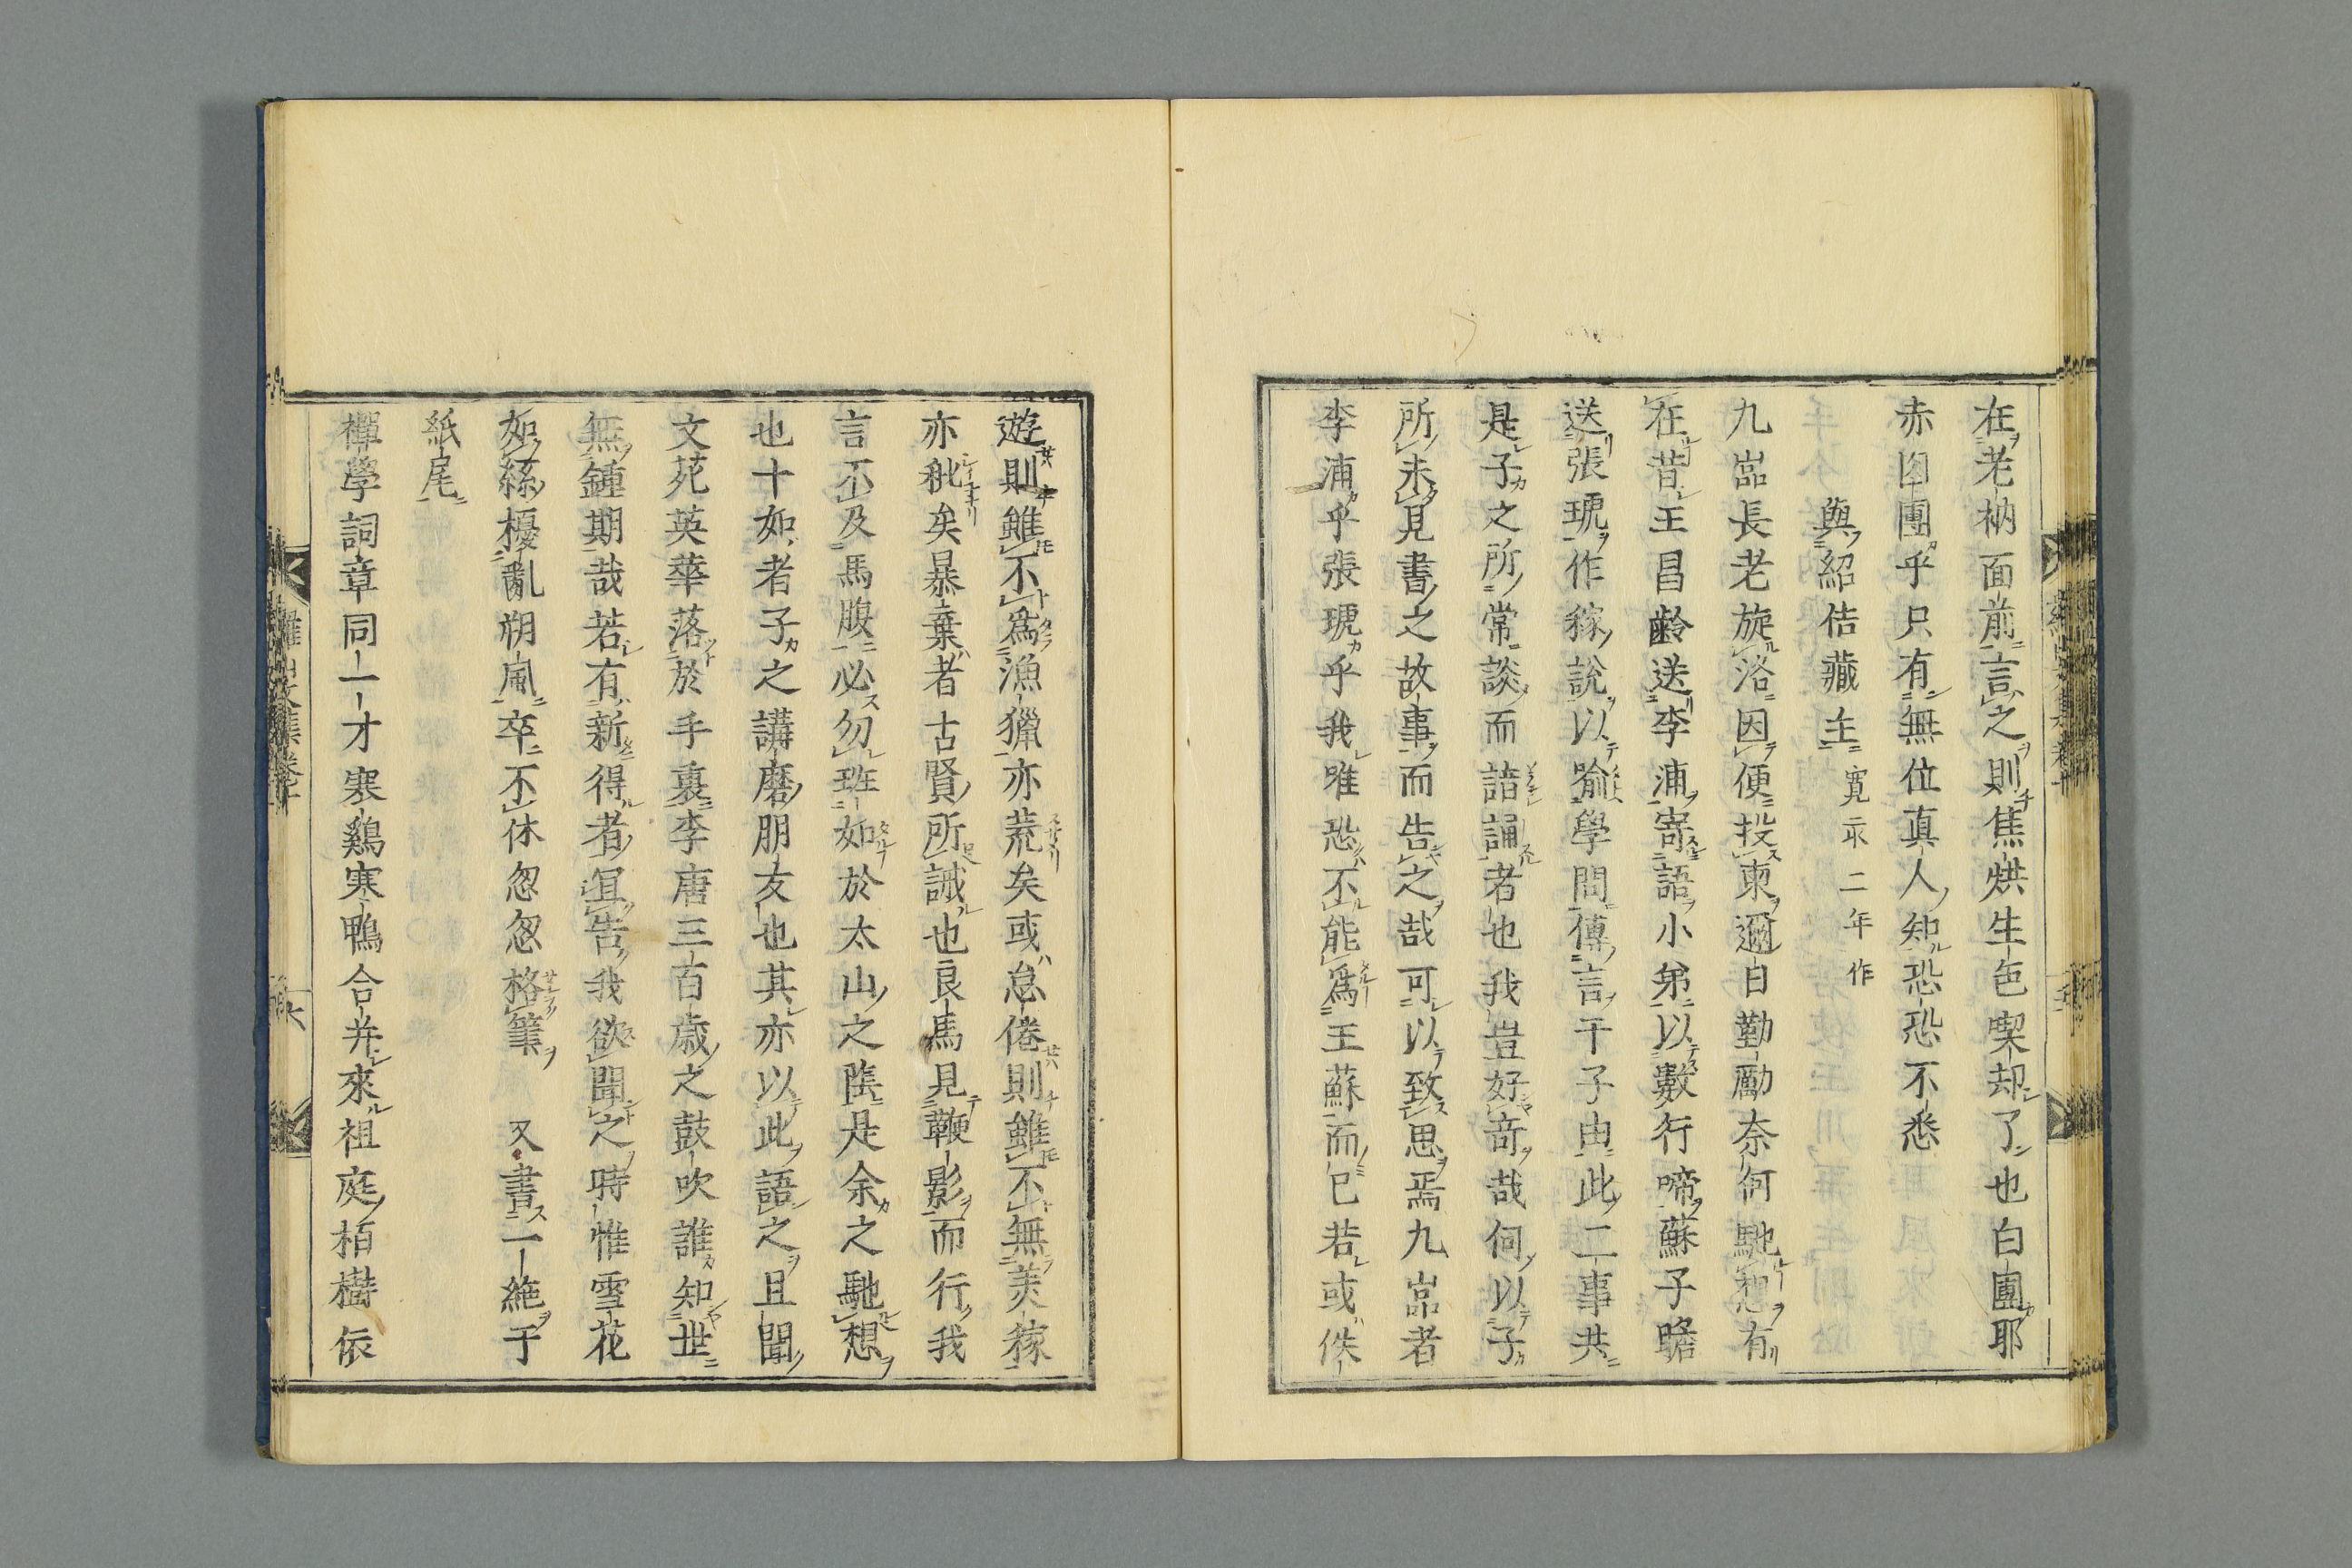 在老衲面前言之則焦烘生色喫却了也白團耶
赤囪團乎只有無位真人知恐恐不悉
與紹佶藏主 寬永二年作
九嵓長老旋洛因便投東邇日勤勵奈何馳想有
在昔王昌齡送李浦寄語小弟以數行啼蘇子瞻
送張琥作稼說以喻學問傳言干子由此二事共
是子之所常談而諳誦者也我豈好奇哉何以子
所未見書之故事而告之哉可以致思焉九嵓者
李浦乎張琥乎我唯恐不能爲王蘇而已若或佚
遊則雖不爲漁獵亦荒矣或怠倦則雖不無美稼
亦秕矣暴棄者古賢所誡也良馬見鞭影而行我
言不及馬腹必勿班如於太山之陰是余之馳想
也十如者子之講磨朋友也其亦以此語之且聞
文苑英華落於手裏李唐三百歲之鼓吹誰知世
無鍾期哉若有新得者冝告我欲聞之時惟雪花
如絲擾亂朔風卒不休忽忽格筆 又書一絶于
紙尾
禪學詞章同一才寒鷄寒鴨合并來祖庭栢樹依
羅山文集卷十
六